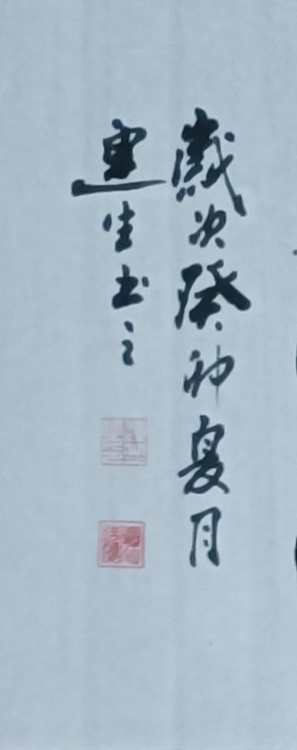 歲次癸卯夏月
建生书之